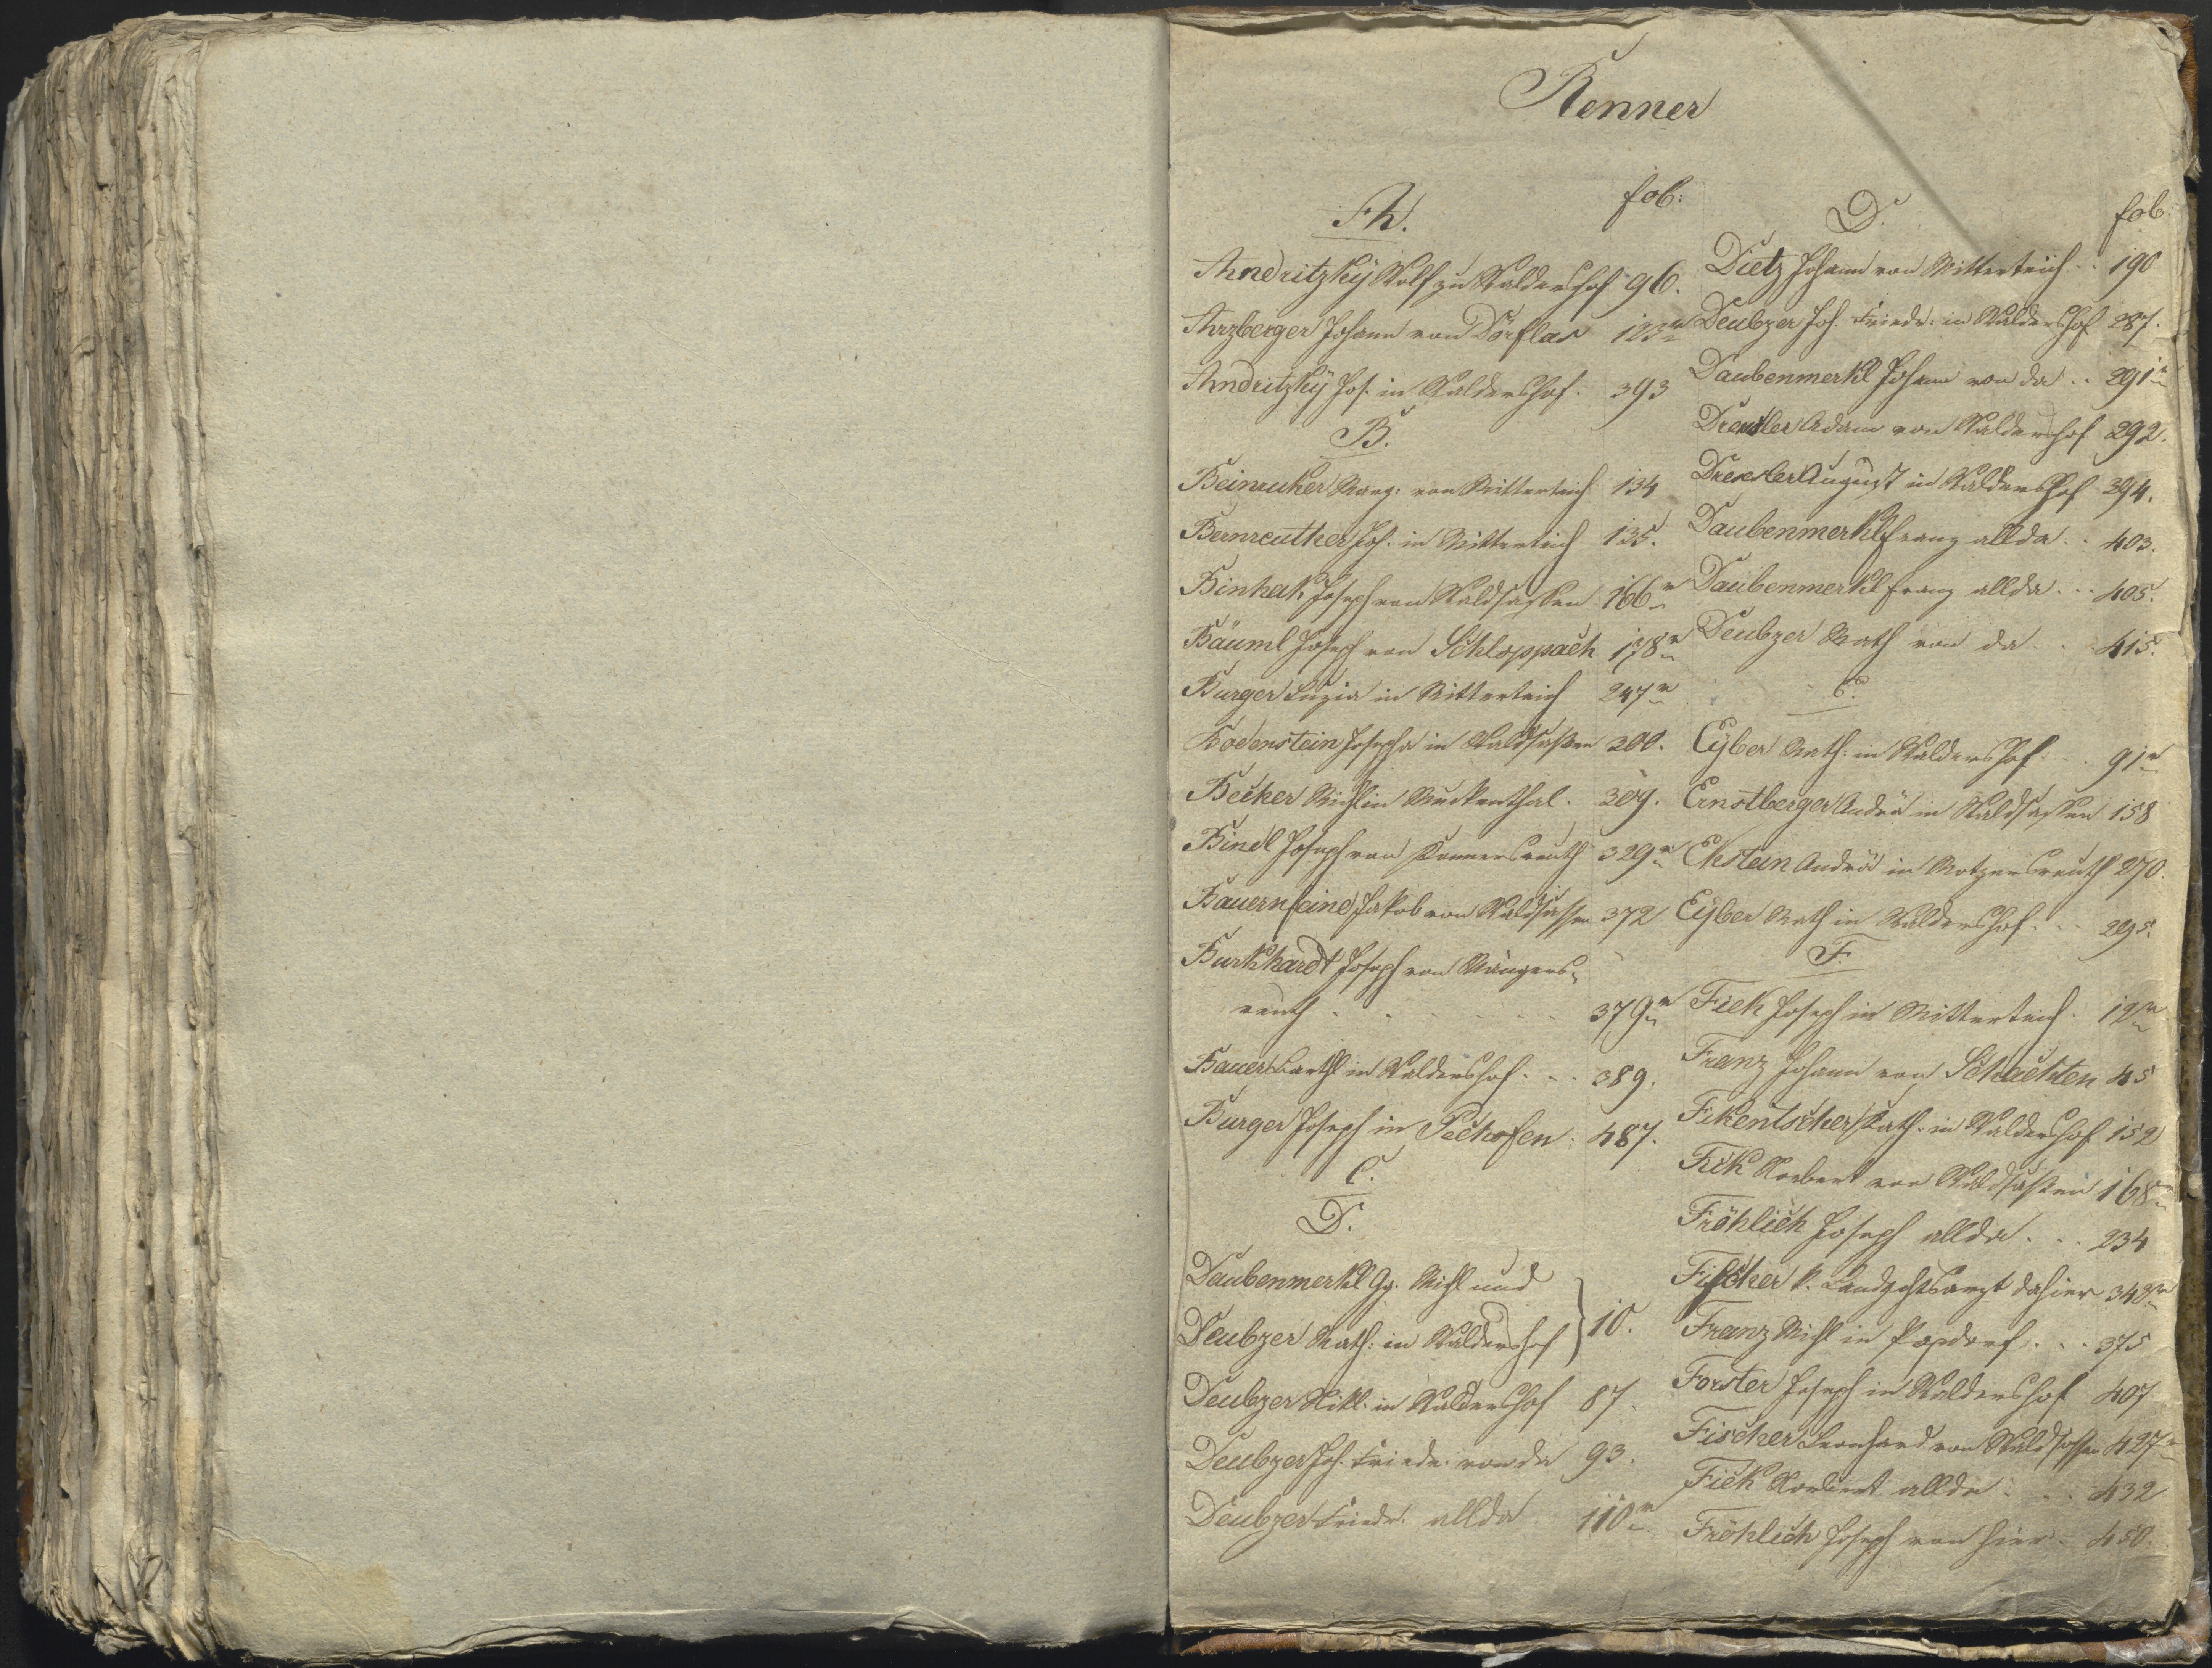 Renner
A. fol:
Andritzkÿ Wolf zu Waldershof 96.
Arzberger Johann von Dörflas 123
Andritzkÿ Jos. in Waldershof. 393
B.
Beinruker Marg: von Mitterteich 134
Bernreuther Joh. in Mitterteich 135.
Binhak Joseph von Waldsassen 166
Bäuml Joseph von Schloppach 178
Burger Luzia in Mitterteich 247
Bodenstein Josepha in Waldsassen 200.
Becker Michl in Muckenthal. 309.
Bindl Joseph von Konnersreuth 329
Bauernfeind Jakob von Waldsassen 372
Burkhardt Joseph von Wängers-
reuth 379
Bauer Barthl in Waldershof. 389.
Burger Joseph in Pechofen. 487.
C.
D.
Daubenmerkl Gg. Michl und
Deubzer Math: in Waldershof } 10.
Deubzer Nikl. in Waldershof 87.
Deubzer Joh. Friedr. von da 93.
Deubzer Friedr. allda 110
D. fol:
Dietz Johann von Mitterteich 190
Deubzer Joh. Friedr. in Waldershof 287.
Daubenmerkl Johann von da 291
Drexler Adam von Waldershof 292.
Drexler August in Waldershof 394.
Daubenmerkl Franz allda 403.
Daubenmerkl Franz allda 405.
Deubzer Math von da 415.
E.
Eÿber Math: in Waldershof 91
Ernstberger Andrä in Waldsassen 158
Ekstein Andrä in Motzersreuth 270.
Eÿber Math in Waldershof. 295.
F.
Fick Joseph in Mitterteich. 12
Franz Johann von Schachten 45
Fikentscher Kath. in Waldershof 152
Fick Norbert von Waldsassen 168
Fröhlich Joseph allda. 234
Fischer k. Landgchtsarzt dahier 348
Franz Michl in Popdorf. 375
Forster Joseph in Waldershof 407
Fischer Leonhard von Waldsassen 427
Fick Norbert allda 432
Fröhlich Joseph von hier. 450.